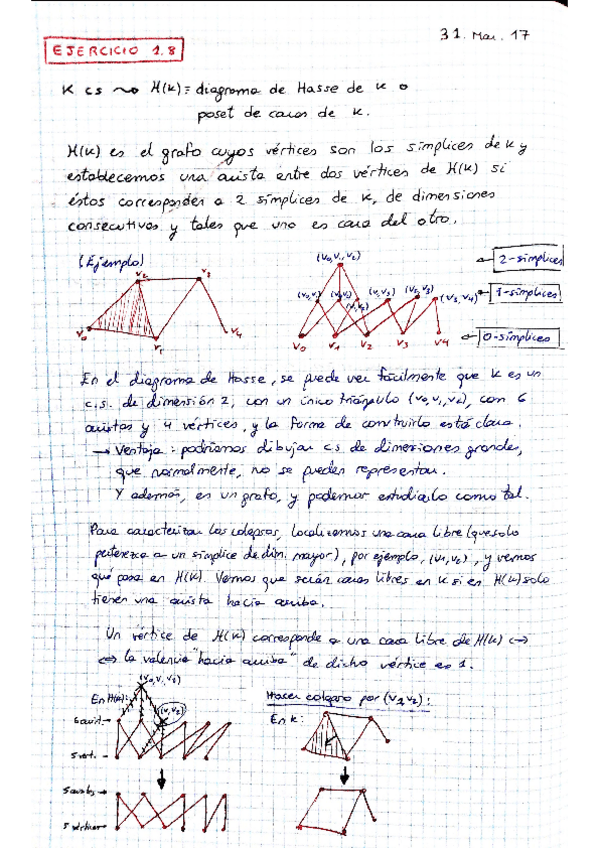 31. Mar. 17
EJERCICIO 1.8
K cs ⇝ H(K) ≡ diagrama de Hasse de K o
poset de caras de K.
H(K) es el grafo cuyos vértices son los símplices de K y
establecemos una arista entre dos vértices de H(K) si
éstos corresponden a 2 símplices de K, de dimensiones
consecutivas y tales que uno es cara del otro.
(Ejemplo)
v2
v3
v0
v1
v4
(v0,v1,v2)
2-símplices
(v0,v1)
(v0,v2)
(v1,v2)
(v1,v3)
(v2,v3)
(v3,v4)
1-símplices
v0 v1 v2 v3 v4
0-símplices
En el diagrama de Hasse, se puede ver fácilmente que K es un
c.s. de dimensión 2, con un único triángulo (v0,v1,v2), con 6
aristas y 4 vértices, y la forma de construirlo está clara.
→ Ventaja: podríamos dibujar cs de dimensiones grandes,
que normalmente, no se pueden representar.
Y además, es un grafo, y podemos estudiarlo como tal.
Para caracterizar los colapsos, localizamos una cara libre (que solo
pertenezca a un símplice de dim. mayor), por ejemplo, (v1,v2), y vemos
qué pasa en H(K). Vemos que serán caras libres en K si en H(K) solo
tienen una arista hacia arriba.
Un vértice de H(K) corresponde a una cara libre de H(K) ⟷
⟷ la valencia "hacia arriba" de dicho vértice es 1.
(v0,v1,v2)
En H(K):
(v1,v2)
6 arist.→
5 vert.→
5 arists→
5 vértices→
Hacer colapso por (v1,v2):
En K: